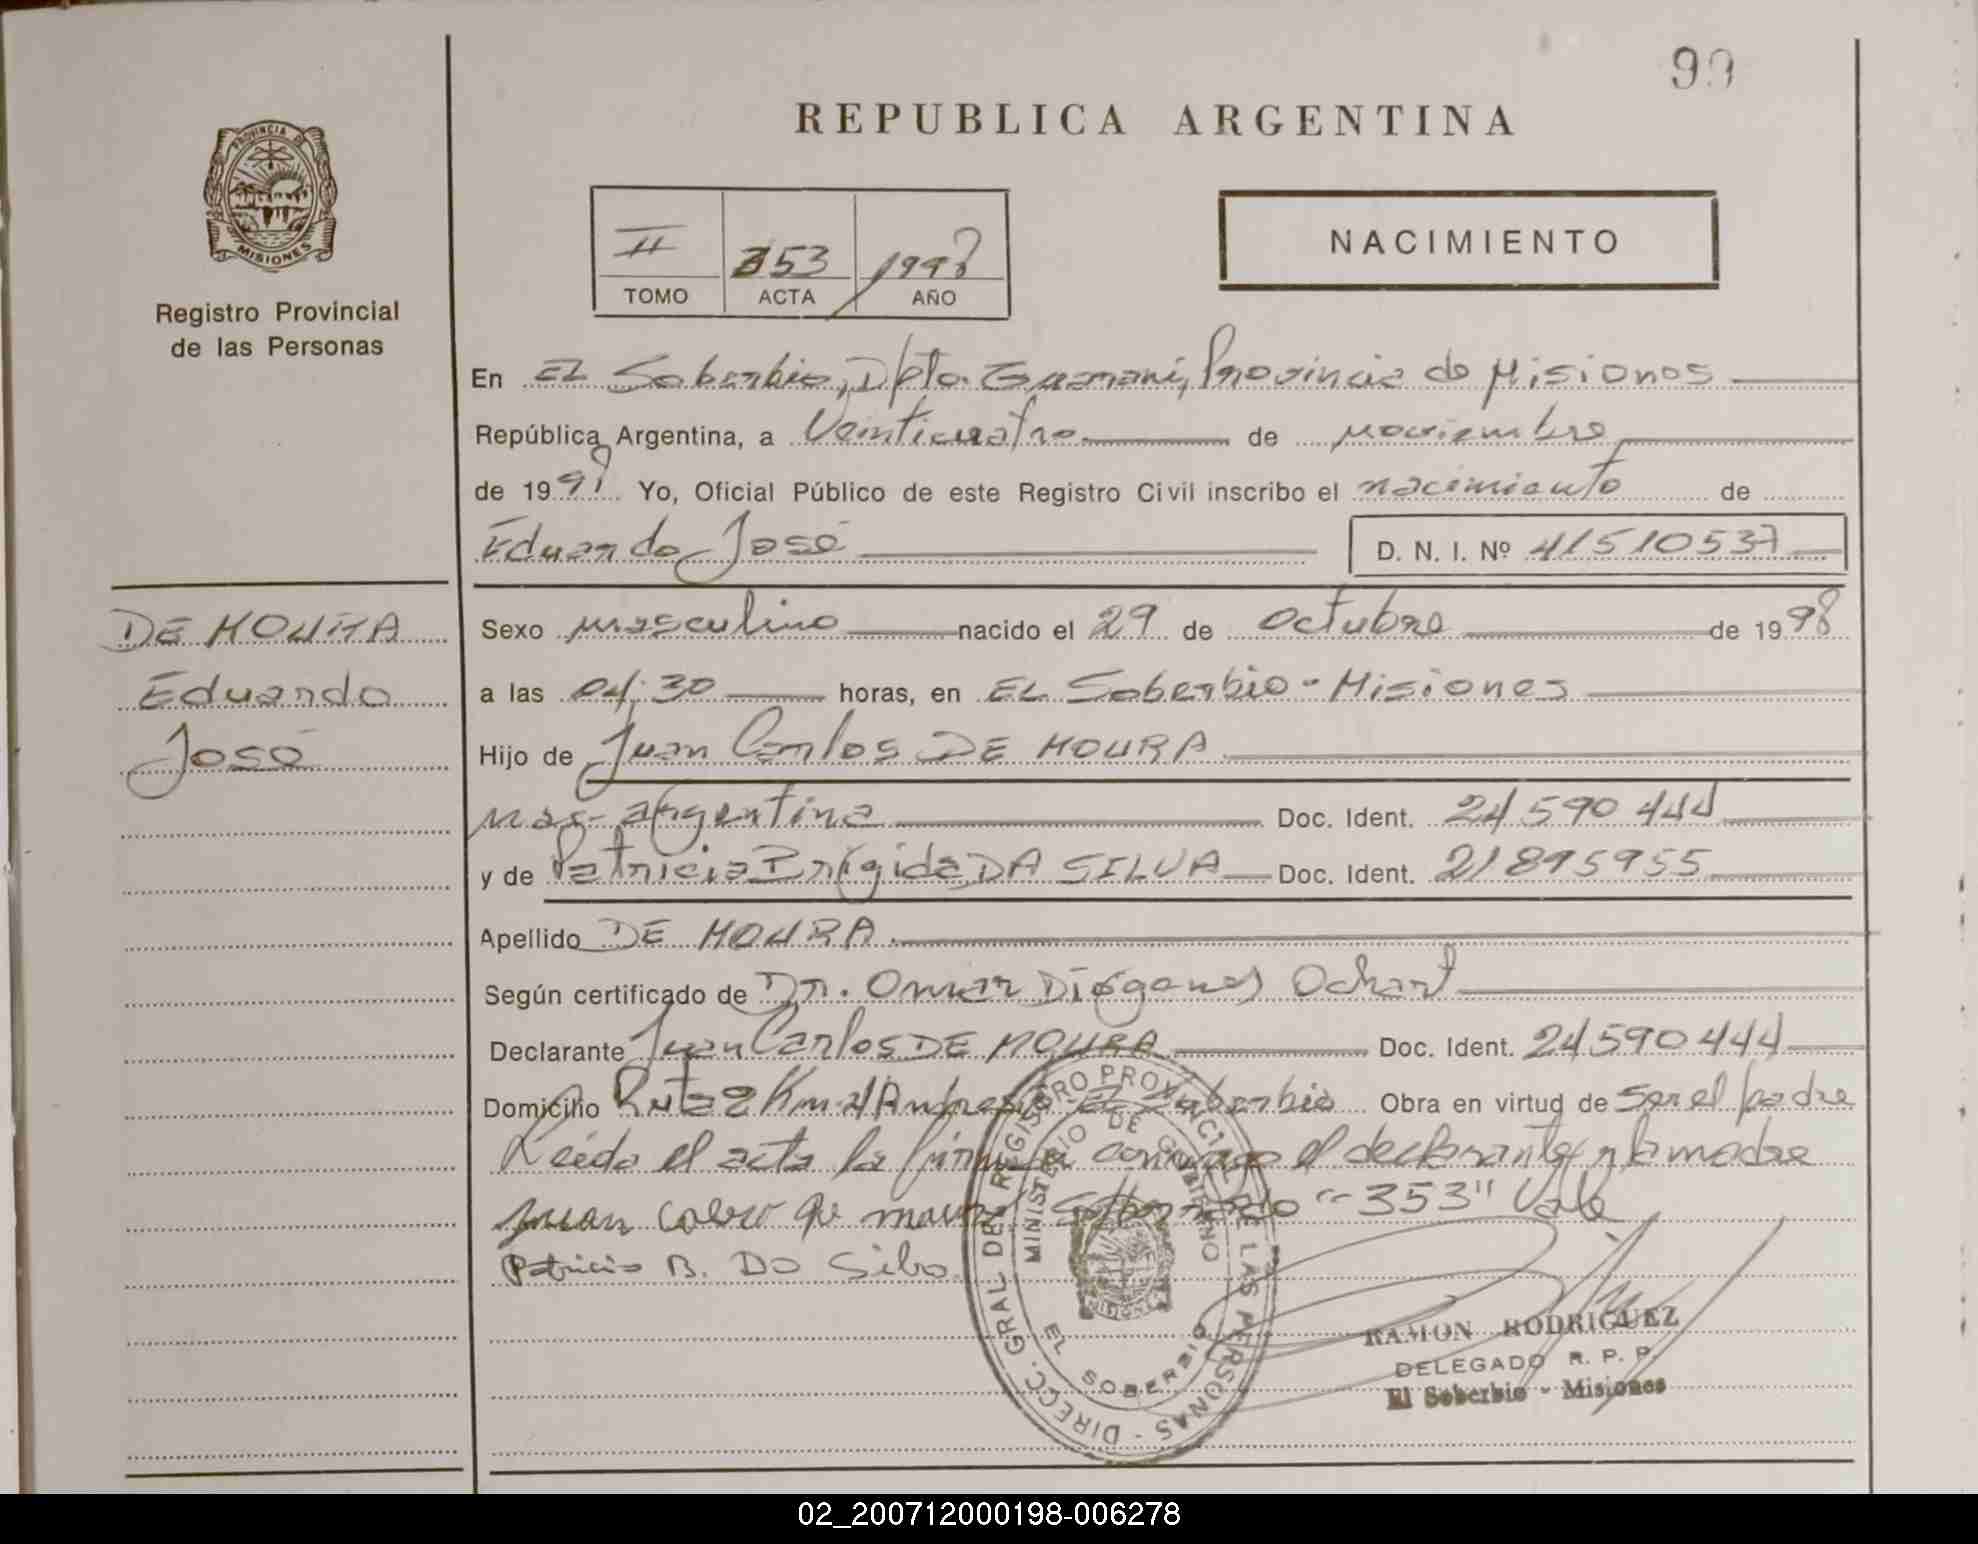 99
REPUBLICA ARGENTINA
PROVINCIA DE MISIONES
Registro Provincial
de las Personas
II 353 1998
TOMO ACTA AÑO
NACIMIENTO
En EL Soberbio, Dpto. Guaraní, Provincia de Misiones
República Argentina, a Veinticuatro de noviembre
de 1998 Yo, Oficial Público de este Registro Civil inscribo el nacimiento de
Eduardo José D. N. I. Nº 41510537
DE MOURA
Eduardo
José
Sexo masculino nacido el 29 de Octubre de 1998
a las 04:30 horas, en EL Soberbio - Misiones
Hijo de Juan Carlos DE MOURA
nac. argentina Doc. Ident. 24590444
y de Patricia Brígida DA SILVA Doc. Ident. 21895955
Apellido DE MOURA
Según certificado de Dr. Omar Diógenes
Declarante Juan Carlos DE MOURA Doc. Ident. 24590444
Domicilio Ruta 2 Km El Soberbio Obra en virtud de ser el padre
Leída el acta la firma conmigo el declarante y la madre
"353" Vale
Patricia B. Da Silva
DIRECC. GRAL DEL REGISTRO PROVINCIAL DE LAS PERSONAS -
MINISTERIO DE GOBIERNO
EL SOBERBIO
RAMON RODRIGUEZ
DELEGADO R. P. P.
El Soberbio - Misiones
02_200712000198-006278